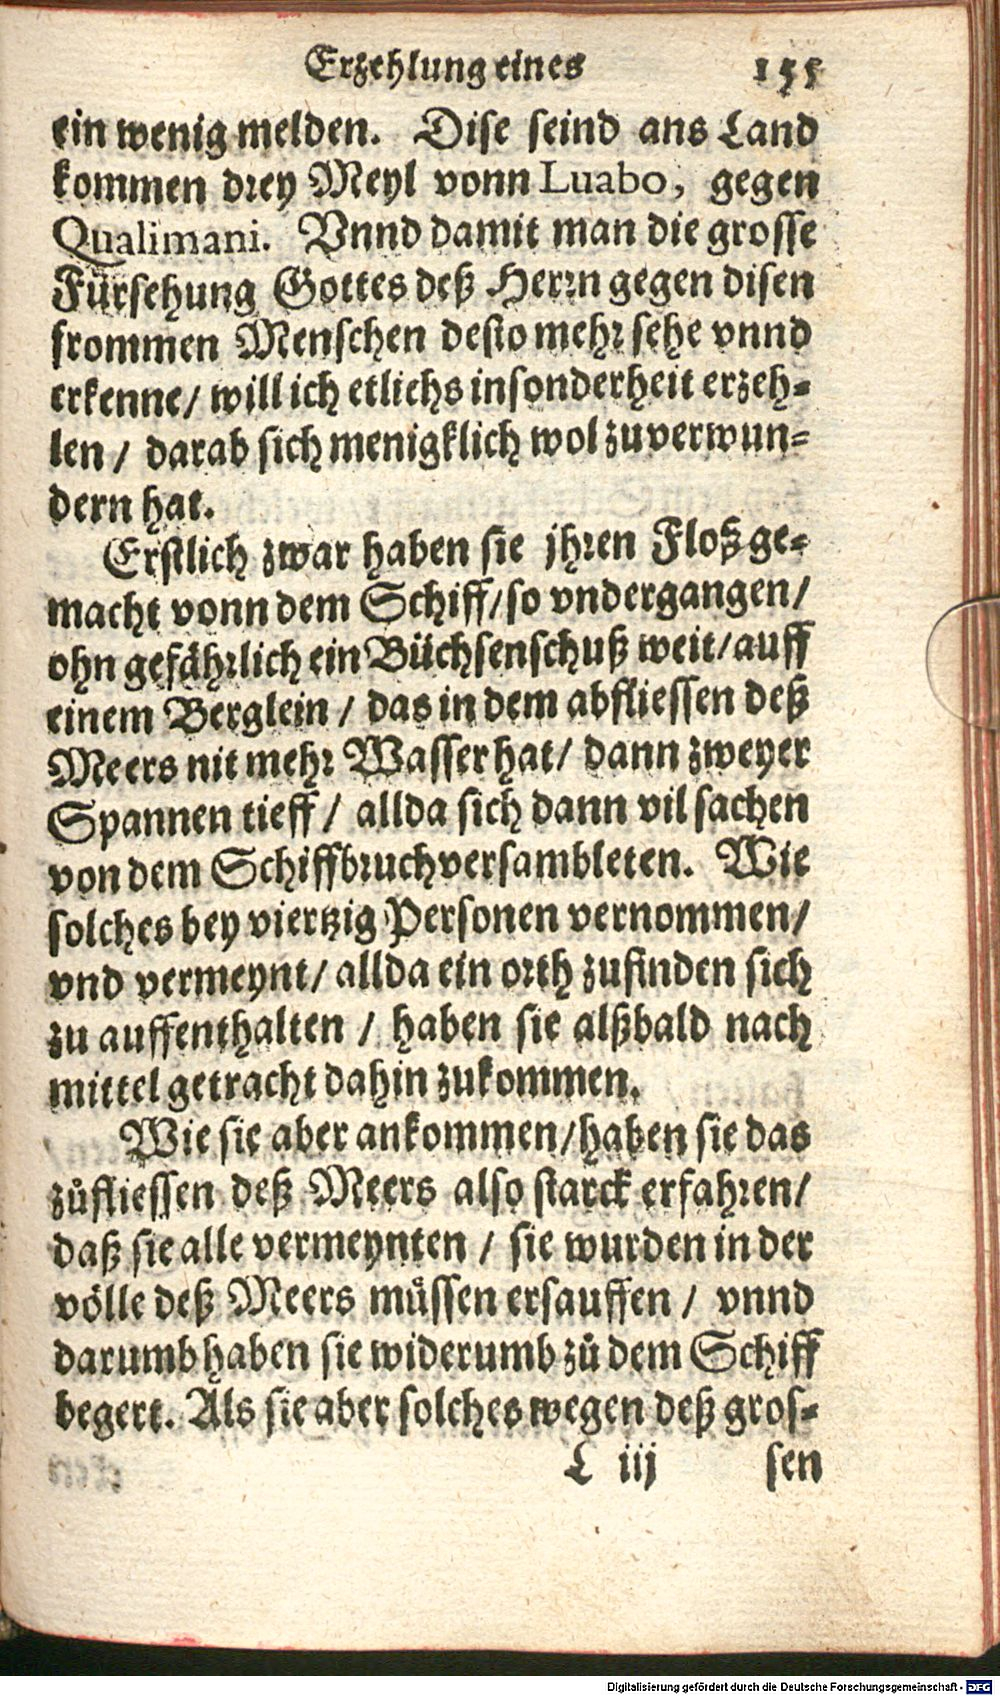 Erzehlung eines 155
ein wenig melden. Dise seind ans Land
kommen drey Meyl vonn Luabo, gegen
Qualimani. Vnnd damit man die grosse
Fürsehung Gottes deß Herrn gegen disen
frommen Menschen desto mehr sehe vnnd
erkenne/ will ich etlichs insonderheit erzeh-
len/ darab sich menigklich wol zuverwun-
dern hat.
Erstlich zwar haben sie jhren Floß ge-
macht vonn dem Schiff/ so vndergangen/
ohn gefährlich ein Büchsenschuß weit/ auff
einem Berglein/ das in dem abfliessen deß
Meers nit mehr Wasser hat/ dann zweyer
Spannen tieff/ allda sich dann vil sachen
von dem Schiffbruch versambleten. Wie
solches bey viertzig Personen vernommen/
vnd vermeynt/ allda ein orth zufinden sich
zu auffenthalten/ haben sie alßbald nach
mittel getracht dahin zukommen.
Wie sie aber ankommen/ haben sie das
zůfliessen deß Meers also starck erfahren/
daß sie alle vermeynten/ sie wurden in der
völle deß Meers müssen ersauffen/ vnnd
darumb haben sie widerumb zů dem Schiff
begert. Als sie aber solches wegen deß gros-
L iij sen
Digitalisierung gefördert durch die Deutsche Forschungsgemeinschaft - DFG